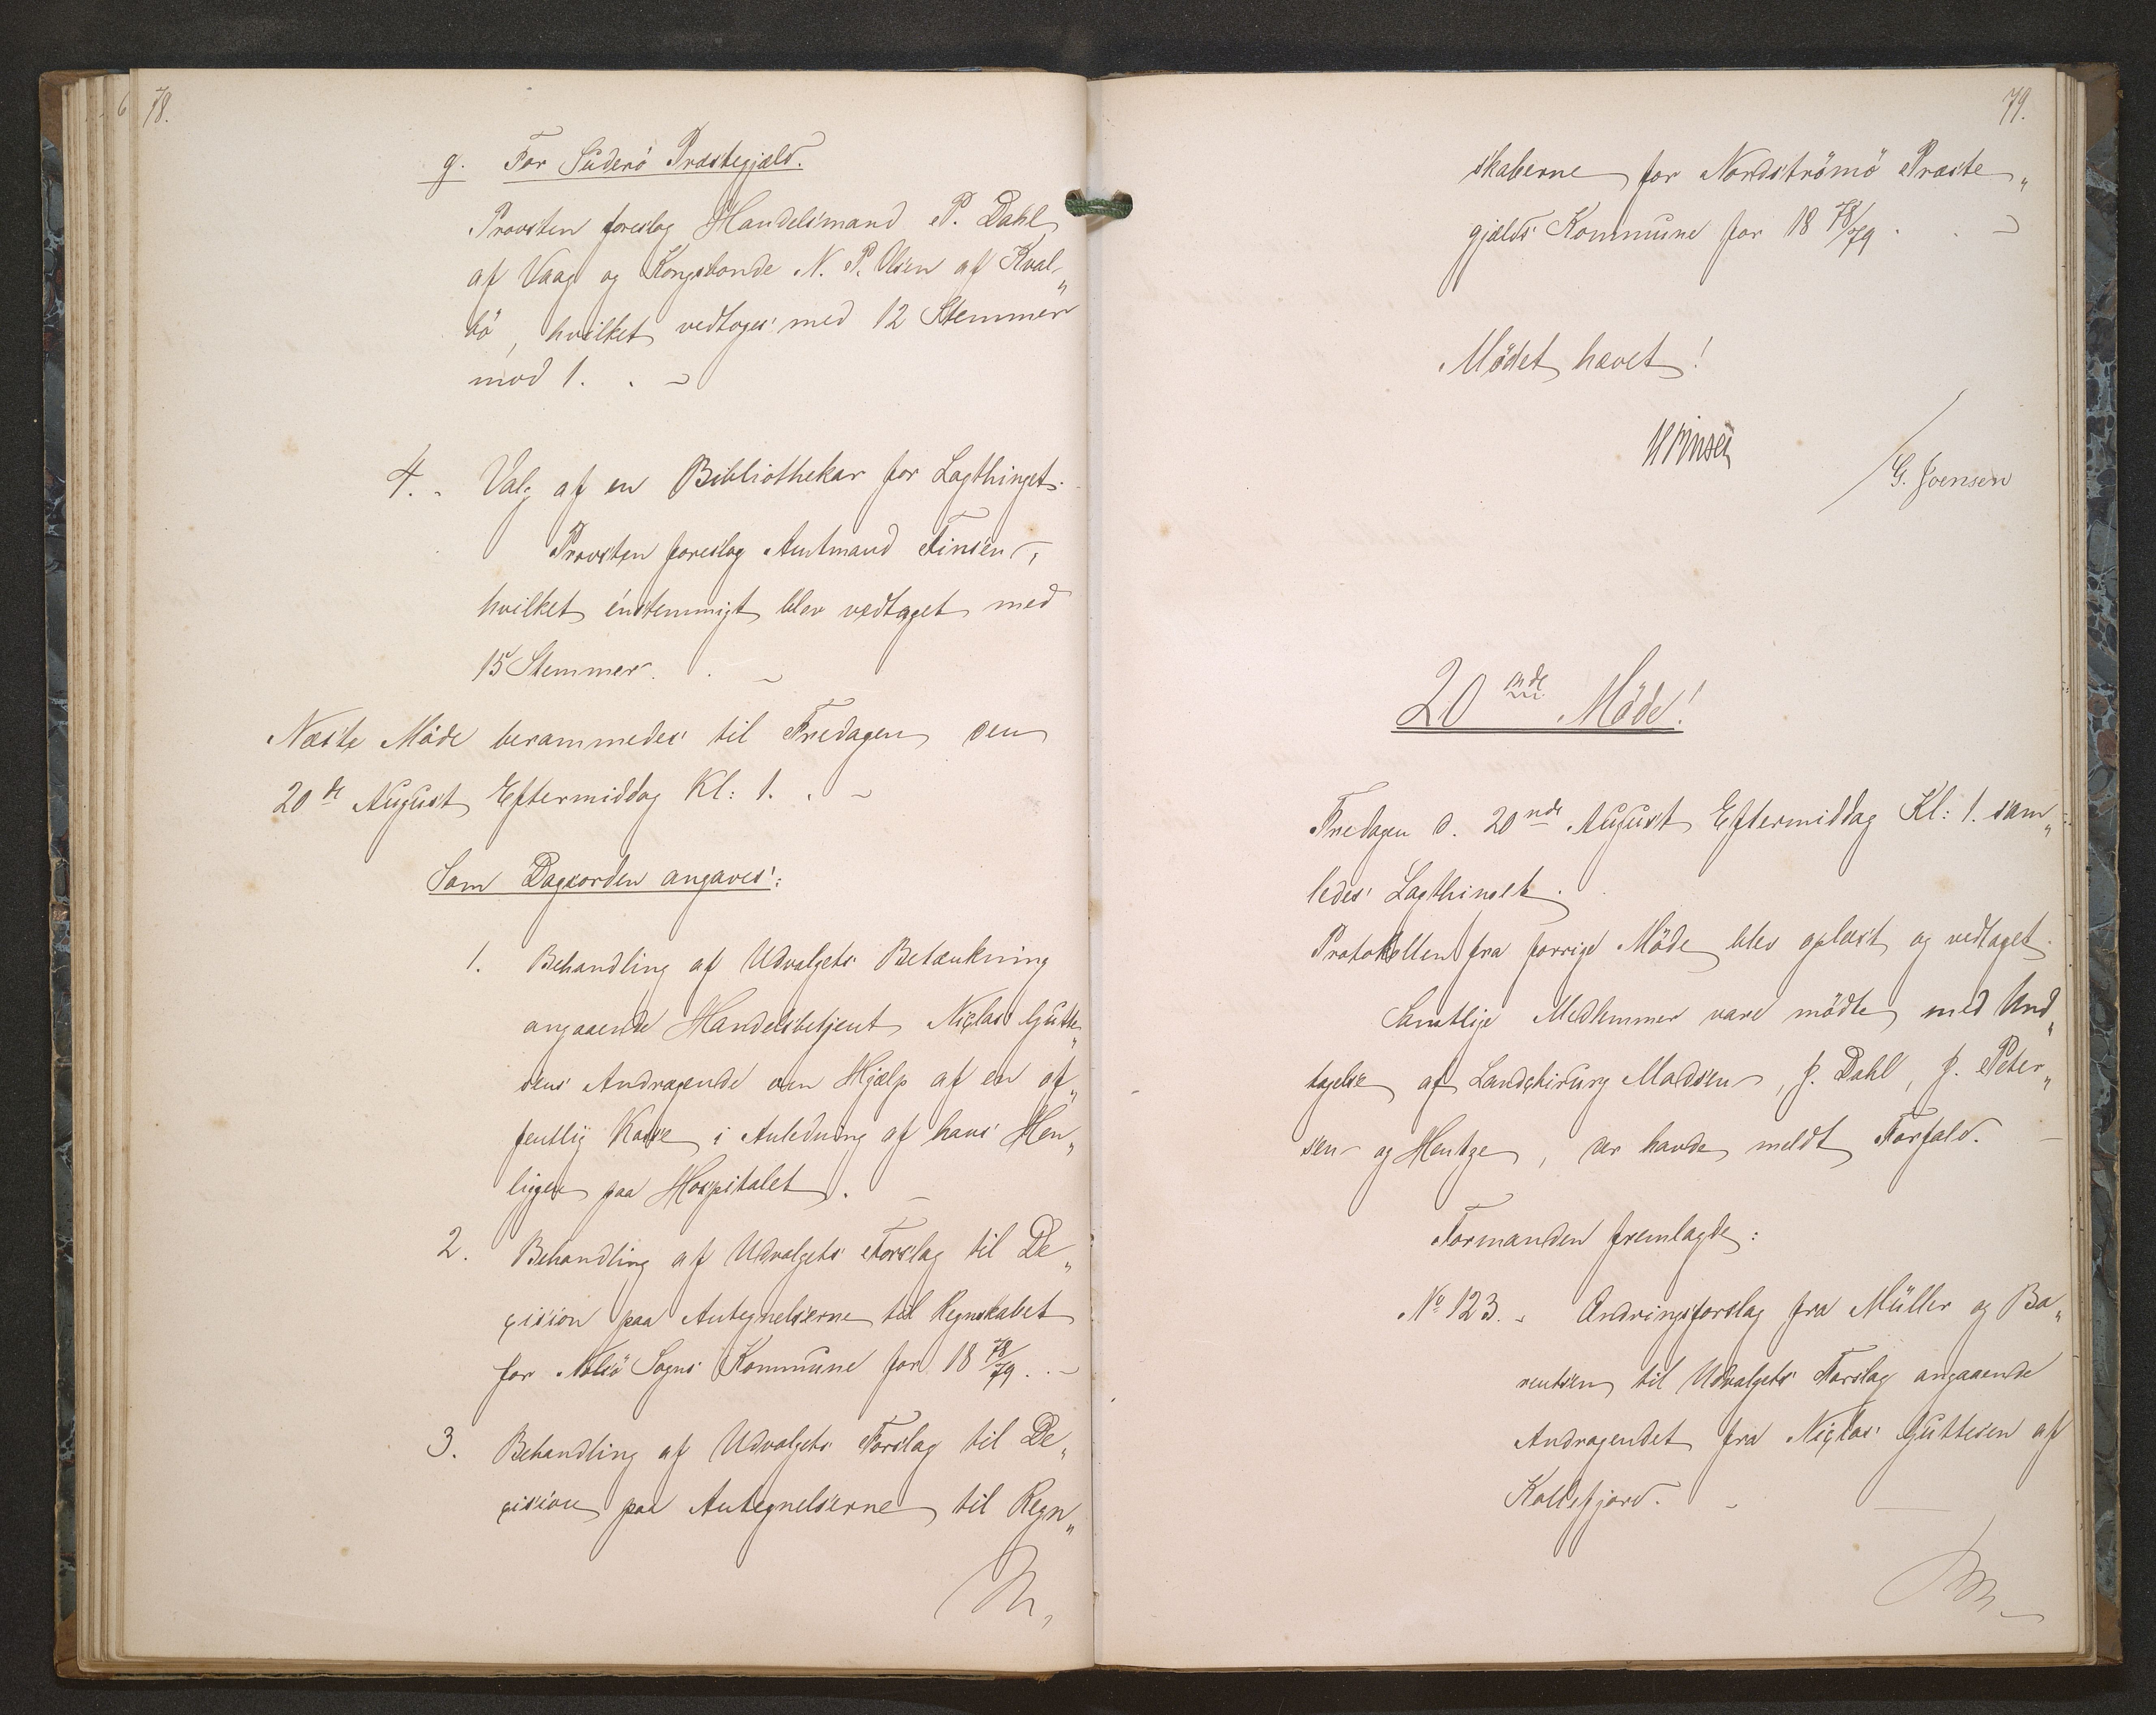 78.
g. For Suderö Præstegjæld.
Provsten foreslog Handelsmand P. Dahl
af Vaag og Kongsbonde N. P. Olsen af Kval„
bö, hvilket vedtoges med 12 Stemmer
mod 1.
4. Valg af en Bibliothekar for Lagthinget.
Provsten foreslog Amtmand Finsen,
hvilket eenstemmigt blev vedtaget med
15 Stemmer.
Næste Möde berammedes til Fredagen den
20de August Eftermiddag Kl: 1.
Som Dagsorden angaves:
1. Behandling af Udvalgets Betænkning
angaaende Handelsbetjent Niclas Gutte„
sens Andragende om Hjælp af en of„
fentlig Kasse i Anledning af hans Hen„
liggen paa Hospitalet.
2. Behandling af Udvalgets Forslag til De„
cision paa Antegnelserne til Regnskabet
for Nolsö Sogns Kommune for 18 78/79.
3. Behandling af Udvalgets Forslag til De„
cision paa Antegnelserne til Regn„
79.
skaberne for Nordströmö Præste„
gjælds Kommune for 18 78/79.
Mödet hævet!
HFinsen
G. Joensen
20nde Möde!
Fredagen d. 20nde August Eftermiddag Kl: 1. sam„
ledes Lagthinget.
Protokollen fra forrige Möde blev oplæst og vedtaget.
Samtlige Medlemmer vare mödte med Und„
tagelse af Landchirurg Madsen, J. Dahl, J. Peter„
sen og Hentze, der havde meldt Forfald.
Formanden fremlagde:
No 123. Ændringsforslag fra Müller og Ba„
rentsen til Udvalgets Forslag angaaende
Andragendet fra Niclas Guttesen af
Kollefjord.